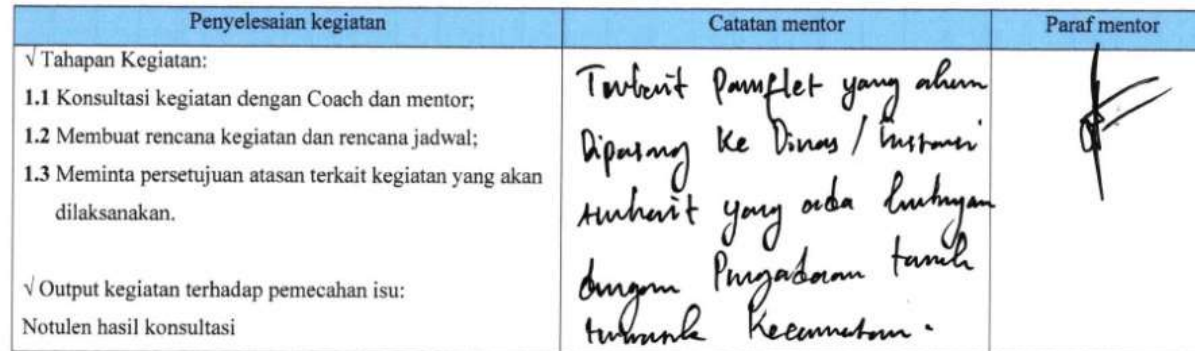 Penyelesaian kegiatan
Catatan mentor
Paraf mentor
√ Tahapan Kegiatan:
1.1 Konsultasi kegiatan dengan Coach dan mentor;
1.2 Membuat rencana kegiatan dan rencana jadwal;
1.3 Meminta persetujuan atasan terkait kegiatan yang akan
dilaksanakan.
√ Output kegiatan terhadap pemecahan isu:
Notulen hasil konsultasi
Terkait Pamflet yang akan
Dipasang Ke Dinas / Instansi
terkait yang ada hubungan
dengan Pengadaan tanah
termasuk Kecamatan.